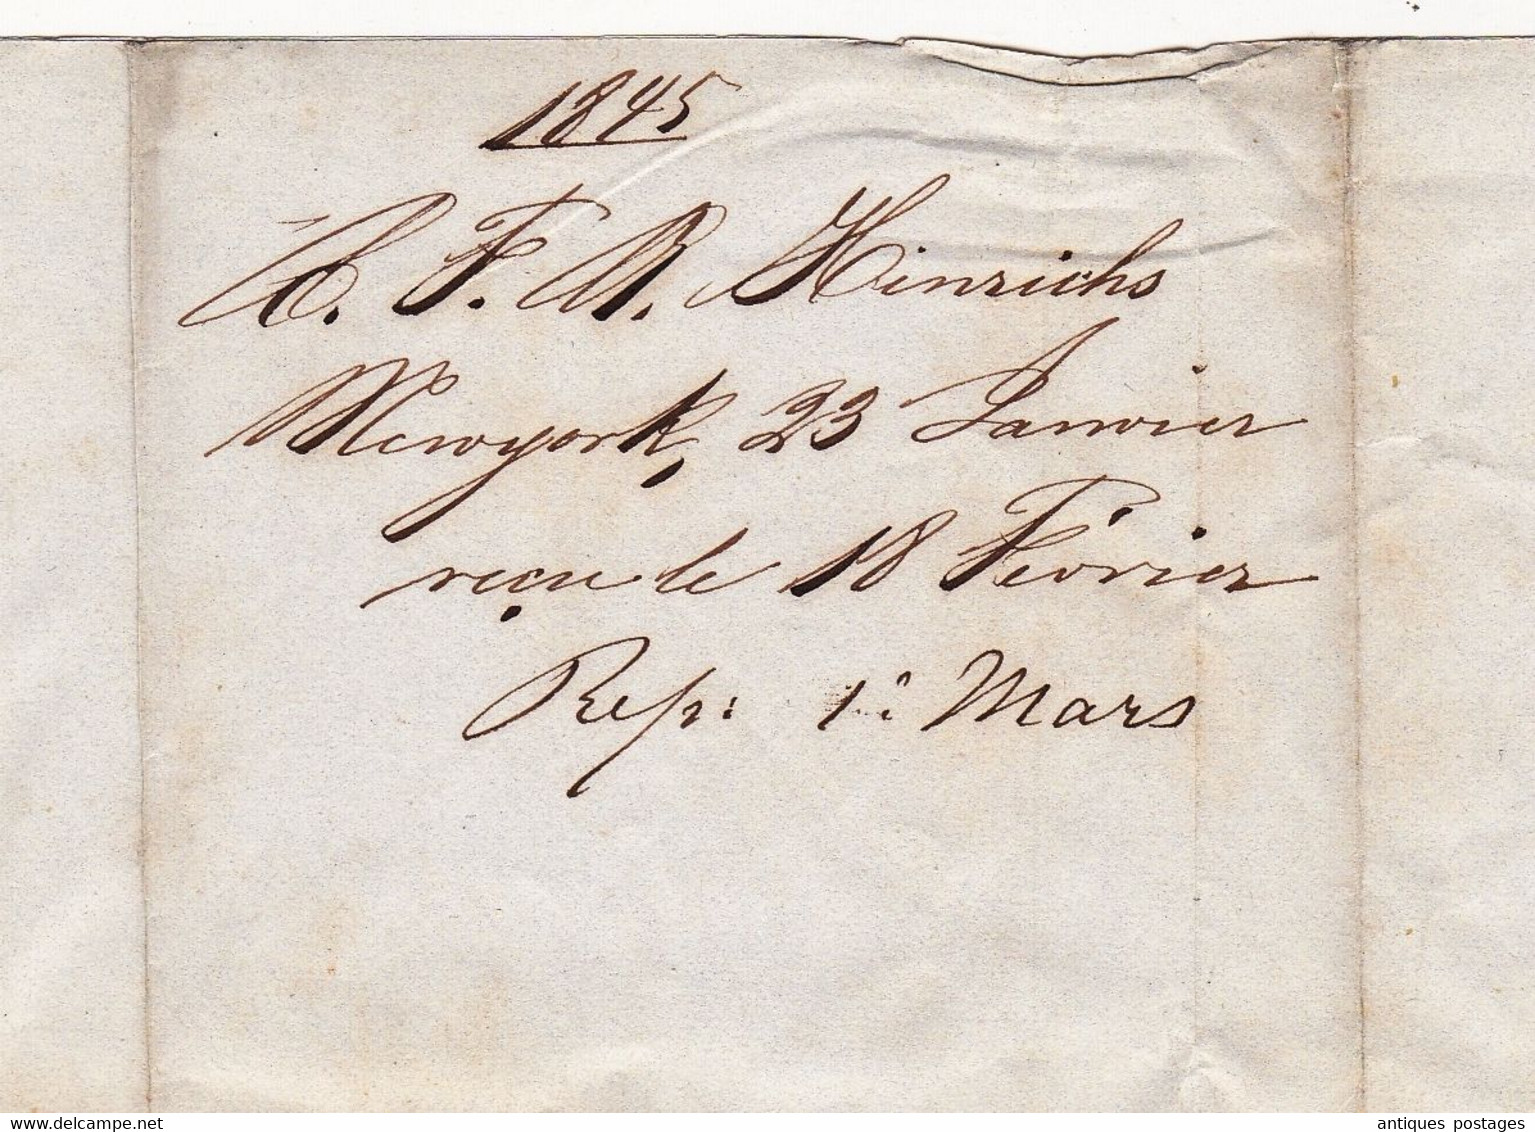 1845
C. F. A. Hinrichs
Newyork, 23 Janvier
reçu le 18 Février
Rep: 1º Mars
www.delcampe.net
antiques postages